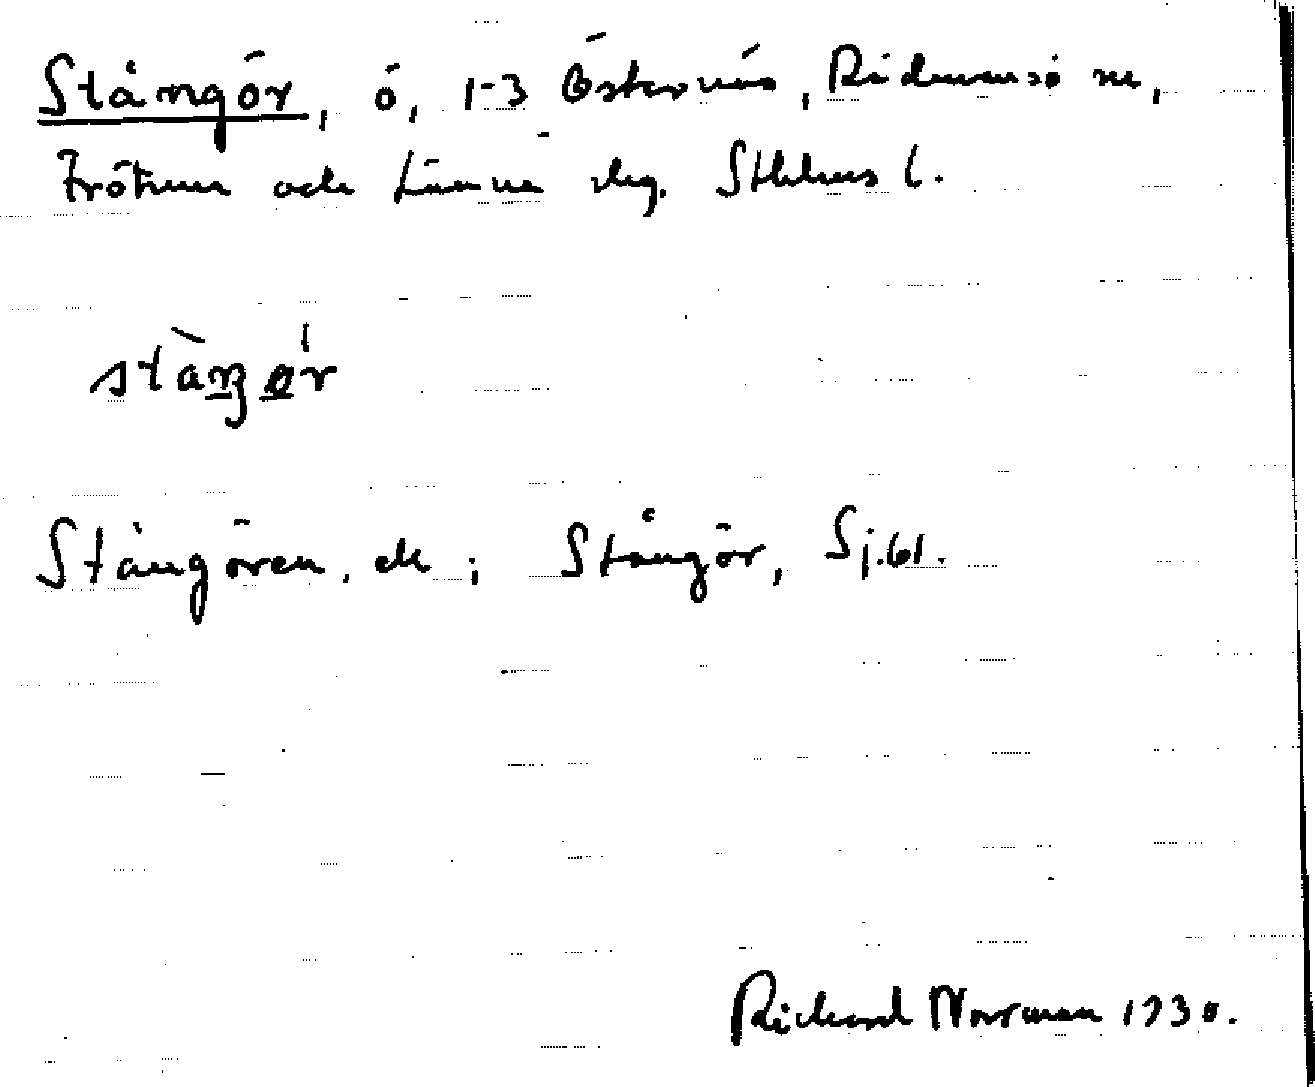 Stångör, ö, 1-3 Östernäs, Rådmansö sn,
Frötuna och Länna slg. Sthlms l.
stàŋør
Stångören, ek; Stångör, Sj.61.
Richard Norrman 1930.